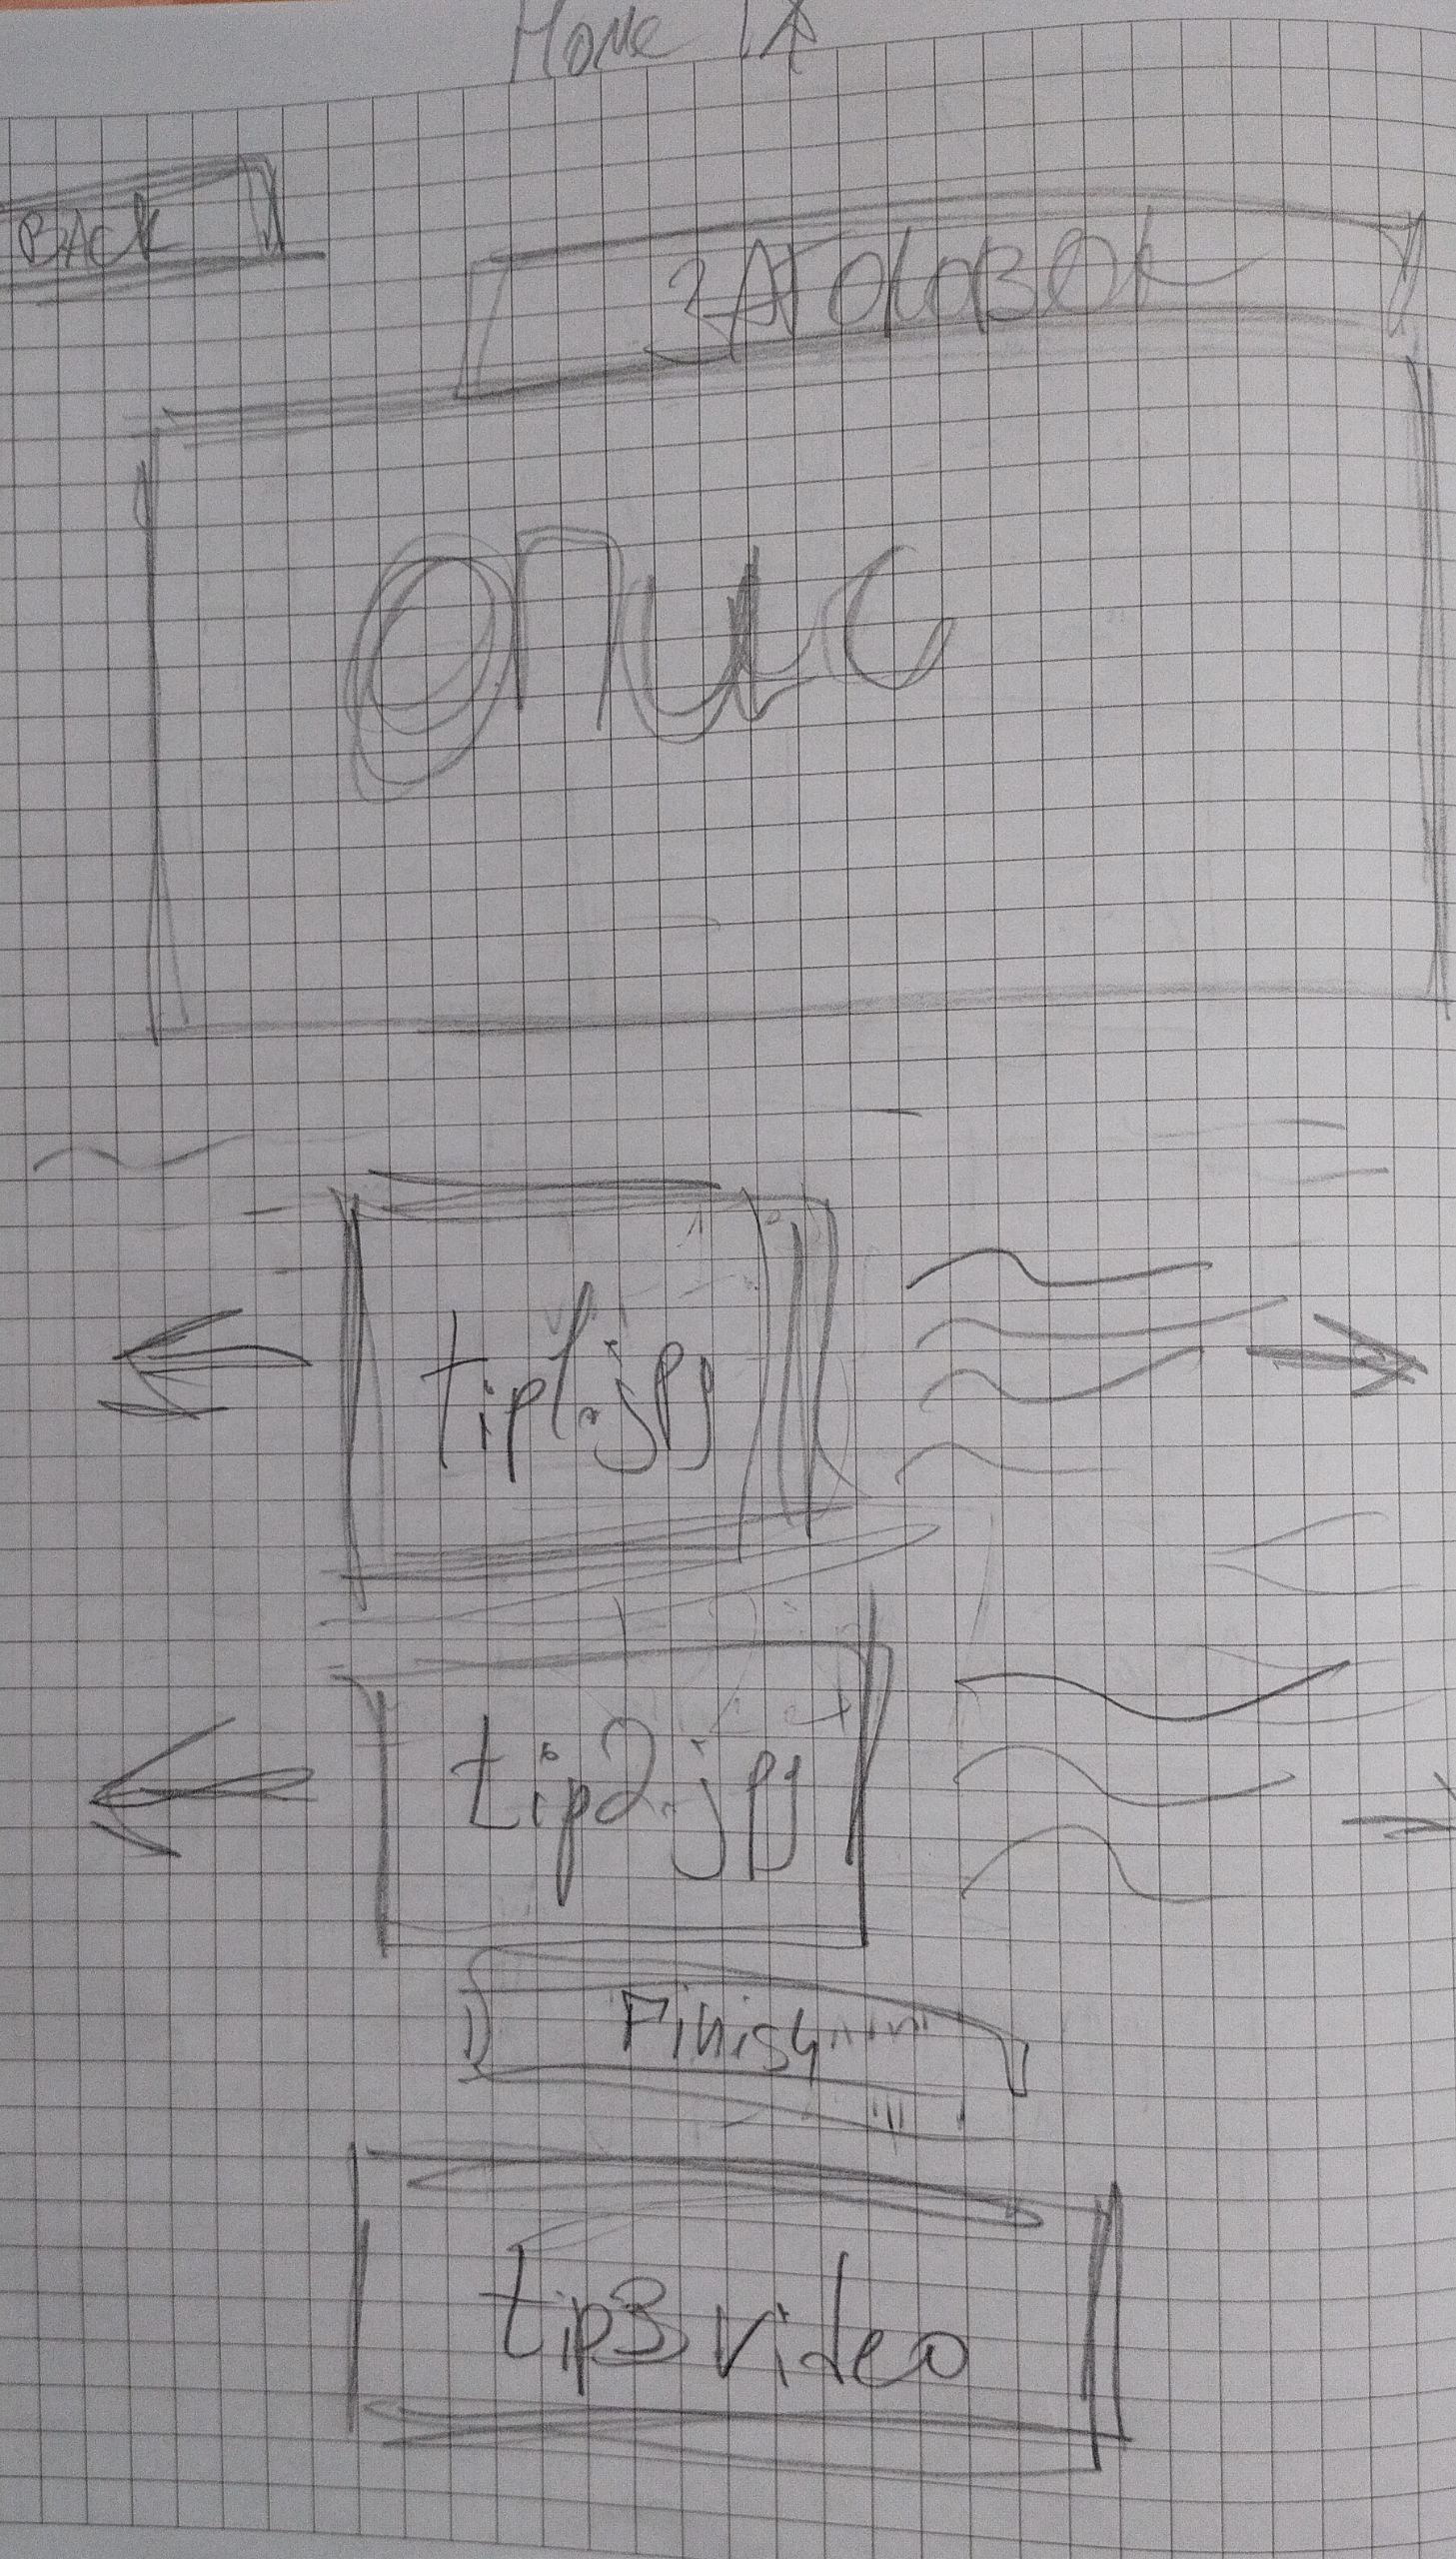 Home
BACK
ЗАГОЛОВОК
опис
tip1.jpg
tip2.jpg
Finish
tip3 video